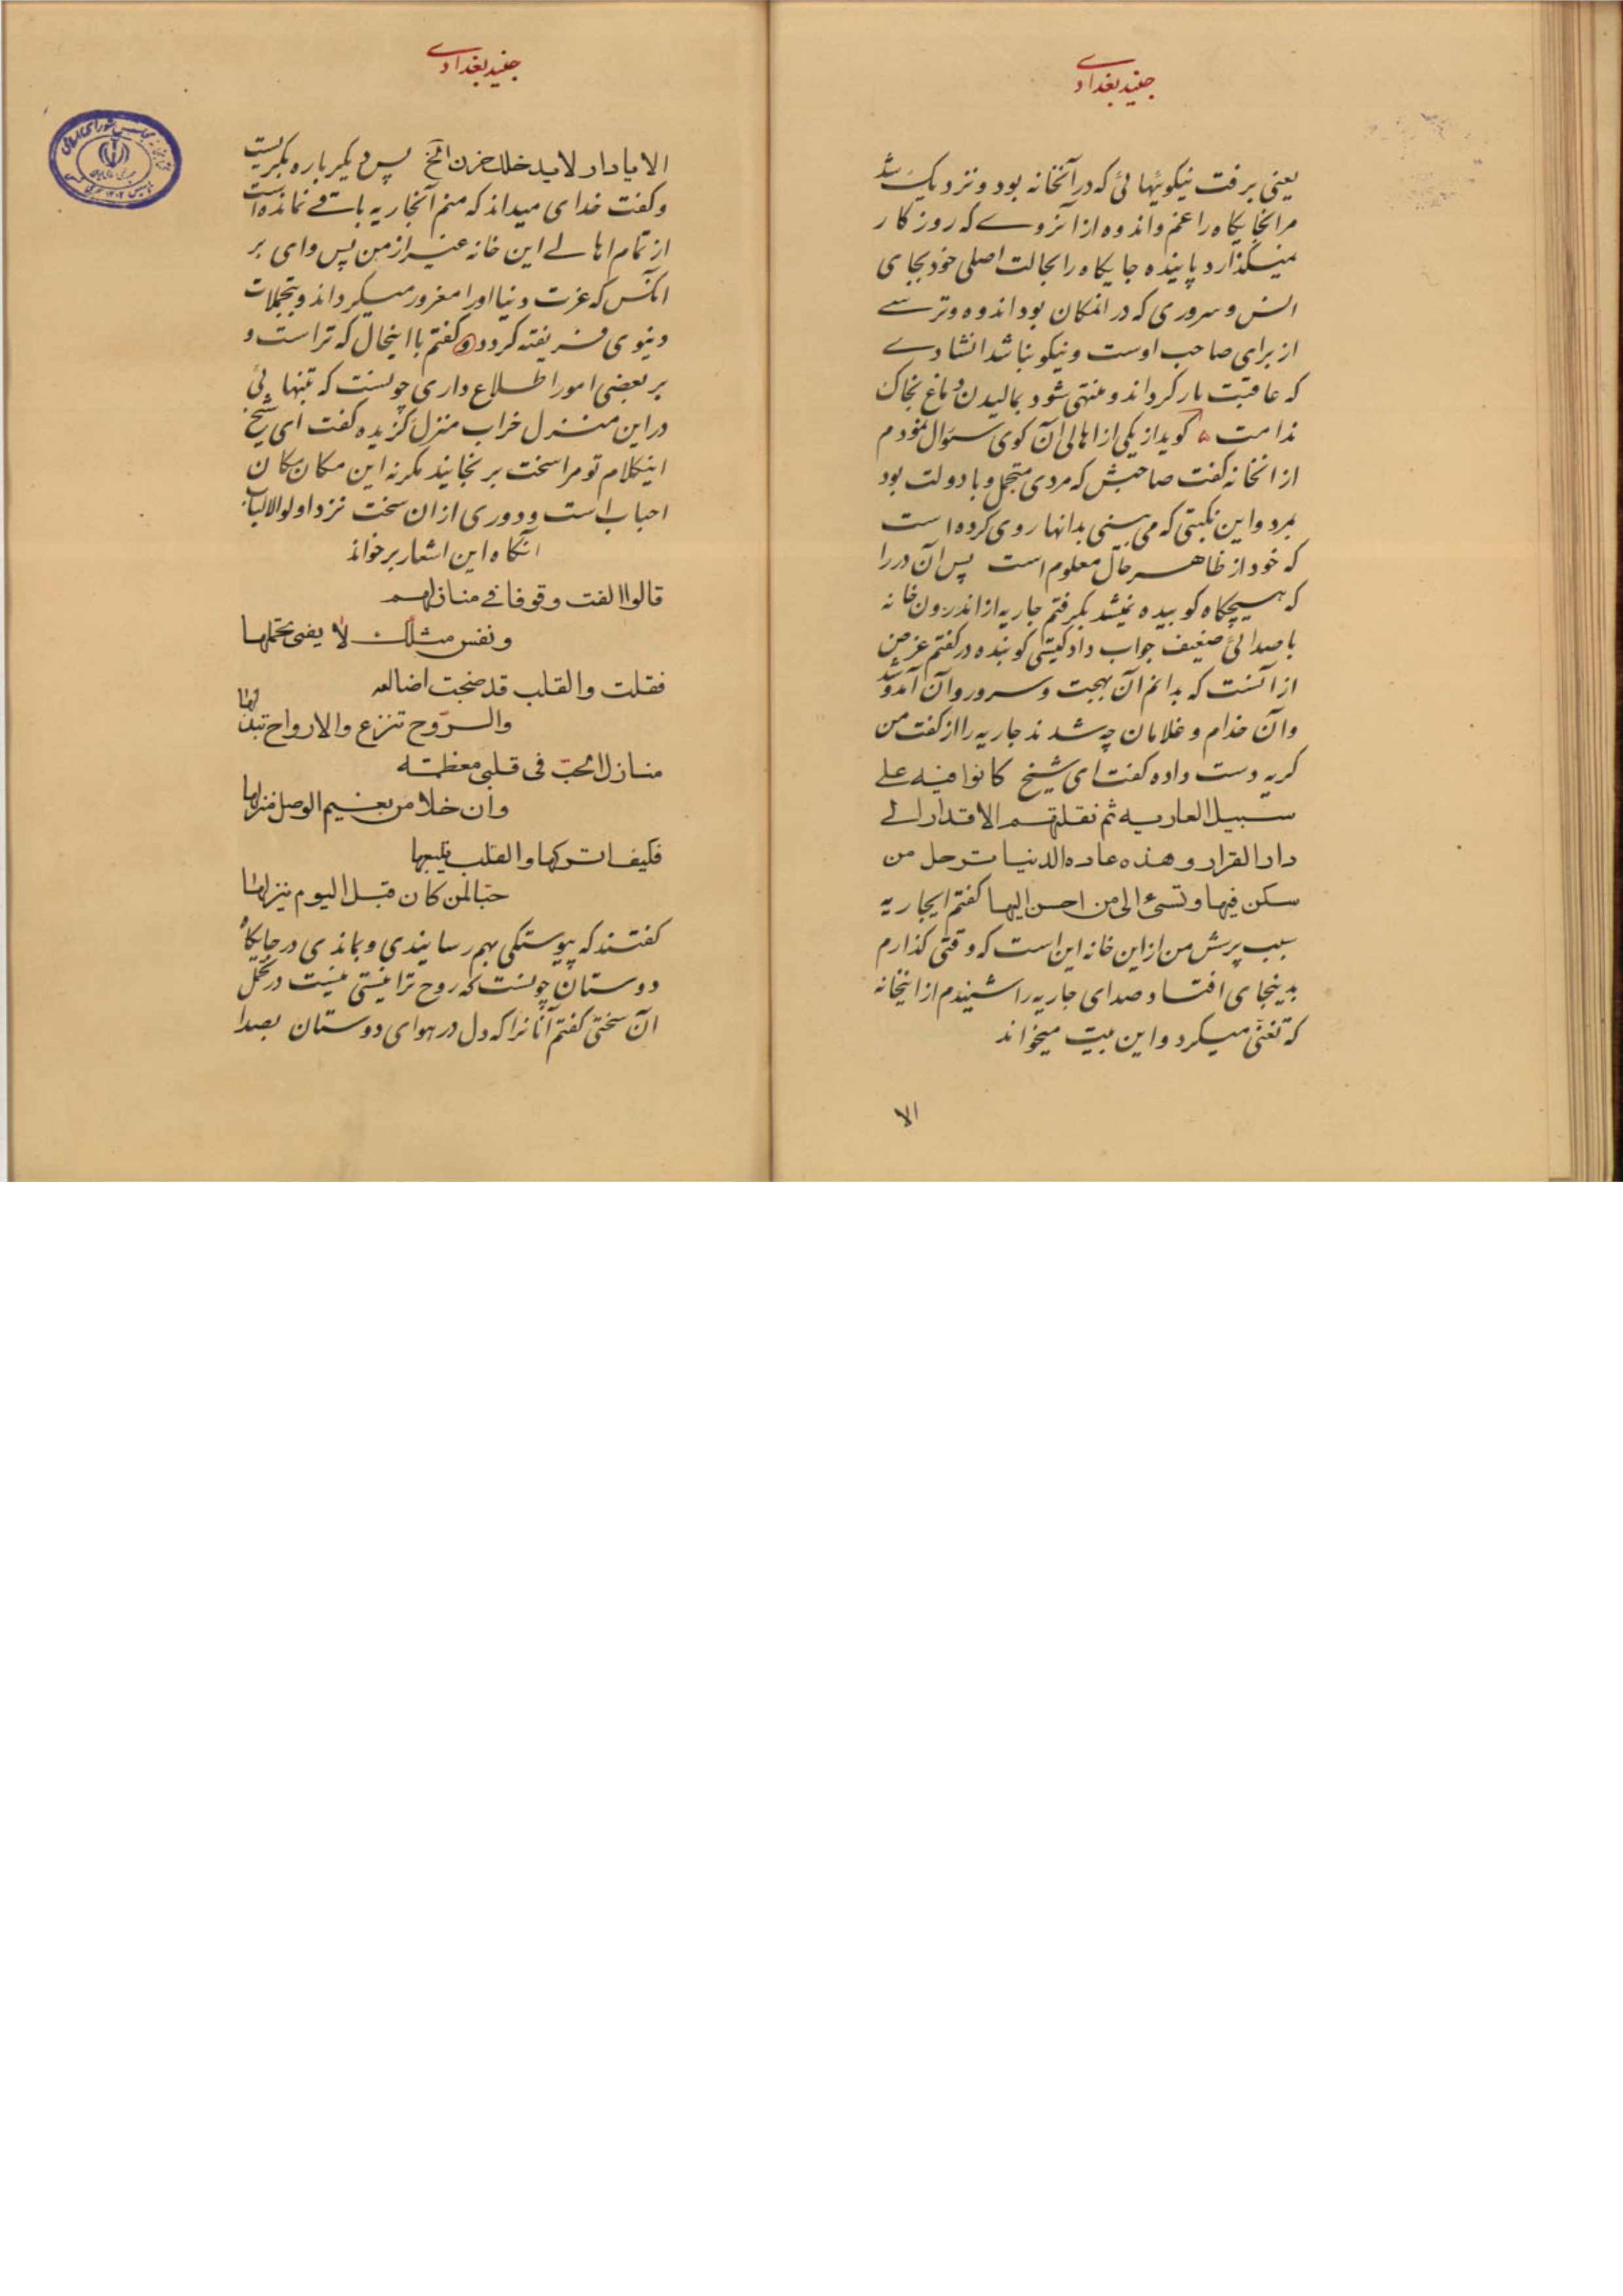 جنید بغدادی
یعنی برفت نیکوئیهائی که در آنخانه بود و نزدیک شد
مرانجایگاه را غم و اندوه از آنروے که روزکار
نمیگذارد پاینده جایگاه را بحالت اصلی خود بجای
انس و سروری که در انمکان بود اندوه و ترسے
از برای صاحب اوست و نیکو نباشد انشادے
که عاقبت بار کرداند و منتهی شود بمالیدن دماغ بخاک
ندامت ه کوید از یکی از اهالی آن کوی سئوال نمودم
از انخانه کفت صاحبش که مردی متجمل و با دولت بود
بمرد و این نکبتی که می بینی بدانها روی کرده است
که خود از ظاهر حال معلوم است پس آن در را
که هیچگاه کوبیده نمیشد بکرفتم جاریه از اندرون خانه
با صدائی ضعیف جواب داد کیستی کوبنده در کفتم غرض
از آنست که بدانم آن بهجت و سرور و آن آمد و شد
و آن خدام و غلامان چه شدند جاریه را از کفت من
کریه دست داده کفت ای شیخ کانوا فیه علے
سبیل العاریه ثم نقلتهم الاقدار الے
دار القرار و هذه عاده الدنیا ترحل من
سکن فیها و تسیء الی من احسن الیها کفتم ایجاریه
سبب پرسش من از این خانه این است که وقتی کذارم
بدینجای افتاد و صدای جاریه را شنیدم از اینخانه
که تغنی میکرد و این بیت میخواند
الا
جنید بغدادی
الا یا دار لا یدخلک حزن الخ پس دیکر باره بکریست
و کفت خدای میداند که منم آنجاریه باقے نمانده است
از تمام اهالے این خانه غیر از من پس وای بر
آنکس که عزت دنیا او را مغرور میکرداند و بتجملات
دنیوی فریفته کردد و کفتم با اینحال که تراست و
بر بعضی امور اطلاع داری چونست که تنهائی
در این منزل خراب منزل کزیده کفت ای شیخ
اینکلام تو مرا سخت برنجانید مکر نه این مکان مکان
احباب است و دوری از ان سخت نزد اولو الالباب
آنکاه این اشعار برخواند
قالوا الفت وقوفا فی منازلهم
و نفس مثلک لا یفنی تحملها
فقلت و القلب قد ضجت اضالعه
و الروح تنزع و الارواح تبدلها
منازل الحب فی قلبی معظمة
و ان خلا من نعیم الوصل منزلها
فکیف اترکها و القلب یتبعها
حبا لمن کان قبل الیوم ینزلها
کفتند که پیوستکی بهم رسانیدی و بماندی در جایکاه
دوستان چونست که روح ترا نیستی نیست در تحمل
آن سختی کفتم آنانرا که دل در هوای دوستان بصدا